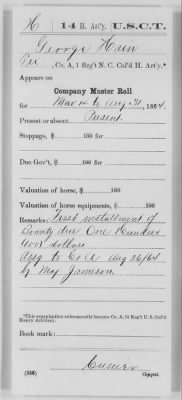 H 14 H. Art'y. U.S.C.T.
George Hain
Pvt, Co. A, 1 Reg't N. C. Col'd H. Art'y.*
Appears on
Company Muster Roll
for Mar 14 to Aug 31, 1864.
Present or absent Present
Stoppage, $ 100 for
Due Gov't, $ 100 for
Valuation of horse, $ 100
Valuation of horse equipments, $ 100
Remarks: First installment of
Bounty due One Hundred
dollars
Assg to Co A Aug 26/64
by Maj Jameson
*This organization subsequently became Co. A, 14 Reg't U. S. Col'd
Heavy Artillery.
Book mark:
(358) Copyist.